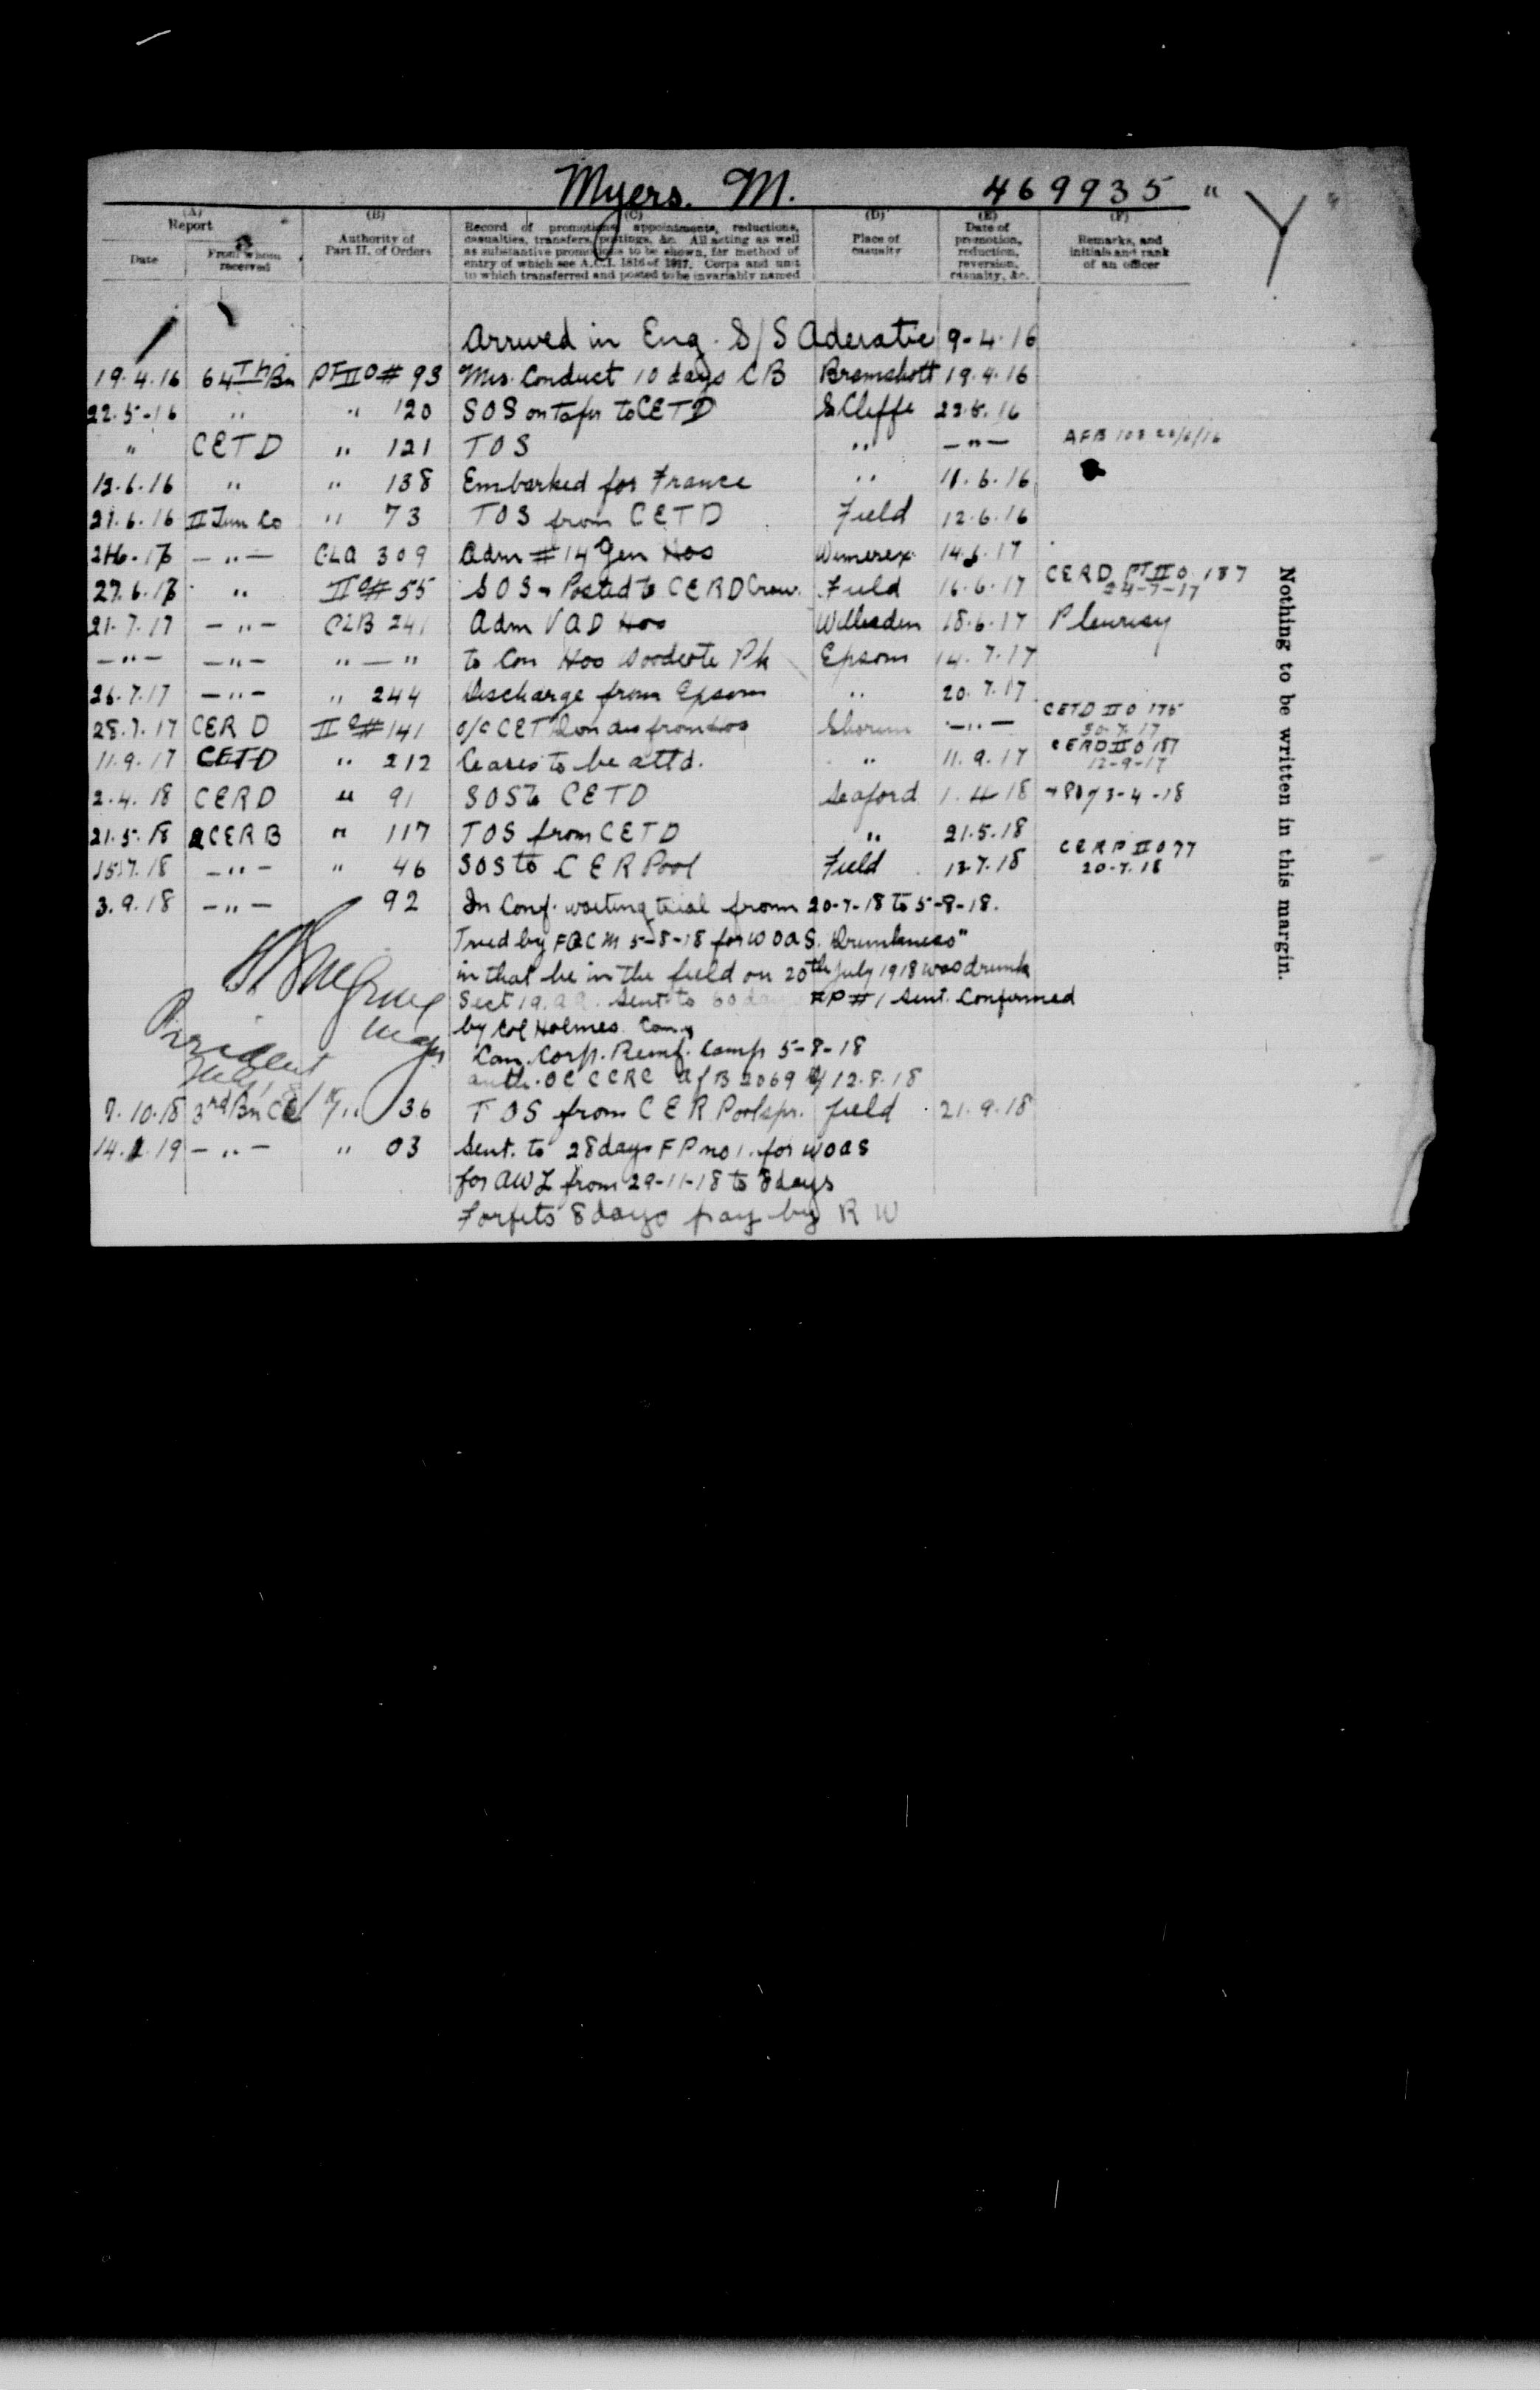 Myers. M. 469935 " Y "
(A) Report (B) Authority of Part II. of Orders (C) Record of promotions, appointments, reductions, casualties, transfers, postings, &c. All acting as well as substantive promotions to be shown, for method of entry of which see A.C.I. 1816 of 1917. Corps and unit to which transferred and posted to be invariably named (D) Place of casualty (E) Date of promotion, reduction, reversion, casualty, &c. (F) Remarks, and initials and rank of an officer
Date From whom received
Arrived in Eng. S/S Aderatic 9-4-16
19.4.16 64Th Bn PT II O # 93 Mis. Conduct 10 days CB Bramshott 19.4.16
22.5-16 " " 120 SOS on Tsfr to CETD S.Cliffe 22.5.16
" CETD " 121 TOS " -"- AFB 103
12.6.16 " " 138 Embarked for France " 11.6.16
21.6.16 II Tun Co " 73 TOS from CETD Field 12.6.16
-"- CLA 309 Adm # 14 Gen Hos Wimerex 14.6.17
27.6.17 " II O # 55 SOS Posted to CERD Crow. Field 16.6.17 CERD PT II O 187
24-7-17
21.7.17 -"- CLB 241 Adm VAD Hos Willesden 18.6.17 Pleurisy
-"- -"- "-" to Con Hos Woodcote Pk Epsom 14.7.17
26.7.17 -"- " 244 Discharge from Epsom " 20.7.17
28.7.17 CERD II O # 141 O/C CETD on dis from Hos Shorum -"- CETD II O 175
30-7-17
11.9.17 CETD " 212 Ceases to be attd. " 11.9.17 CERD II O 187
12-9-17
2.4.18 CERD " 91 SOS to CETD Seaford 1.4.18 3-4-18
21.5.18 2CERB " 117 TOS from CETD " 21.5.18
15.7.18 -"- " 46 SOS to CER Pool Field 13.7.18 CERP II O 77
20-7-18
3.9.18 -"- 92 In Conf. waiting trial from 20-7-18 to 5-8-18.
Tried by FGCM 5-8-18 for WOAS. Drunkness"
in that he in the field on 20th July 1918 was drunk
Sect 19. AA. Sent. to 60 days FP # 1 Sent. Confirmed
by Col Holmes. Com.g
Can. Corp. Reinf. Camp 5-8-18
auth. OC CCRC AFB 2069 d/ 12.8.18
Major
President
7.10.18 3rd Bn CE " 36 TOS from CER Pool spr. field 21.9.18
14.1.19 -"- " 03 Sent. to 28 days FP no 1. for WOAS
for AWL from 29-11-18 to 8 days
Forfits 8 days pay by R W
Nothing to be written in this margin.